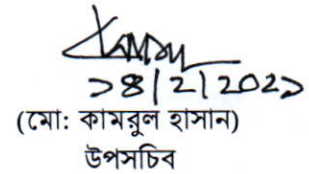 ১৪/২/২০২১
(মো: কামরুল হাসান)
উপসচিব